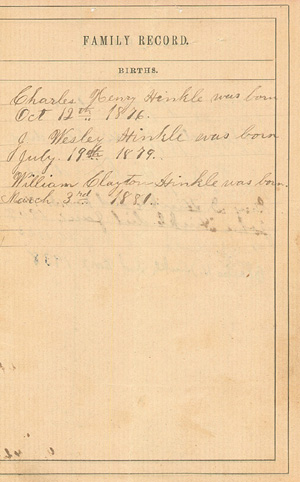 FAMILY RECORD.
BIRTHS.
Charles Henry Hinkle was born
Oct 12th 1876.
J Wesley Hinkle was born
July. 19th 1879.
William Clayton Hinkle was born
March 3rd 1881.